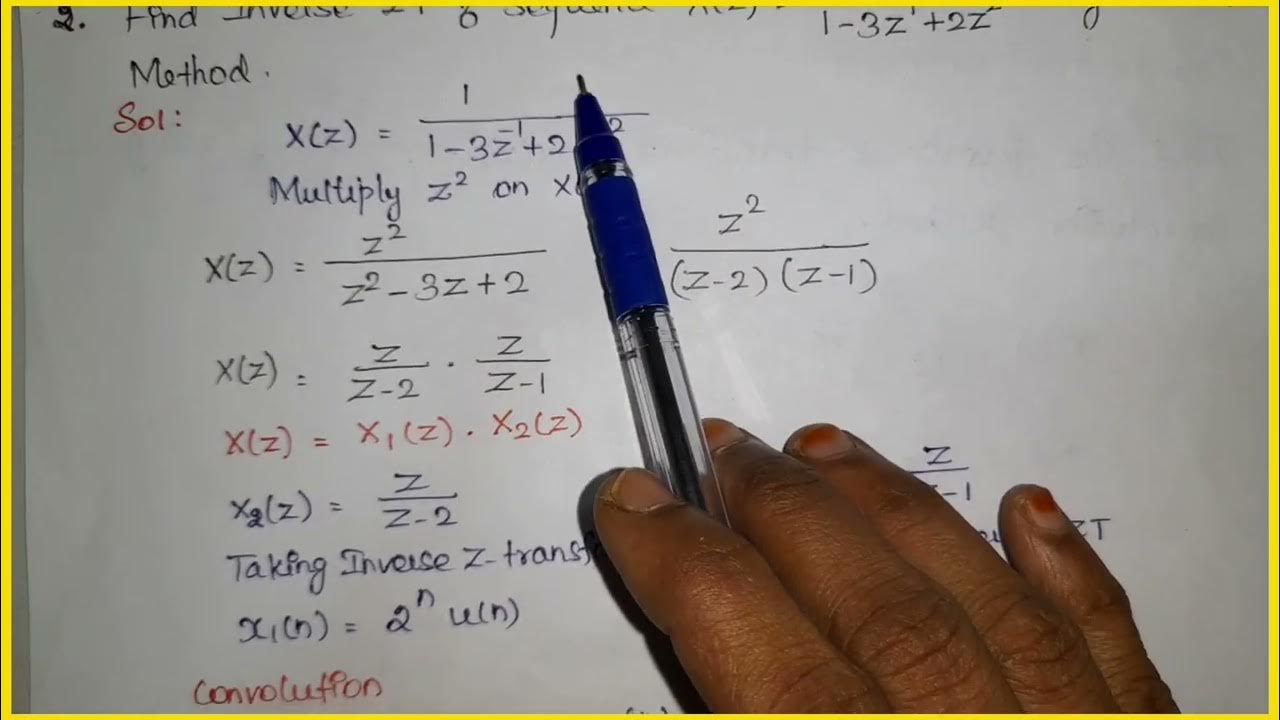 2. Find Inverse ZT of sequence X(z) =
1-3z¹+2z²
Method.
Sol:
1
X(z) = 1-3z⁻¹+2 2
Multiply z² on X
X(z) = z² / z²-3z+2 z² / (z-2)(z-1)
X(z) = z / z-2 . z / z-1
X(z) = X₁(z) . X₂(z)
X₂(z) = z / z-2 z / z-1
Taking Inverse Z-transf ZT
x₁(n) = 2ⁿ u(n)
Convolution